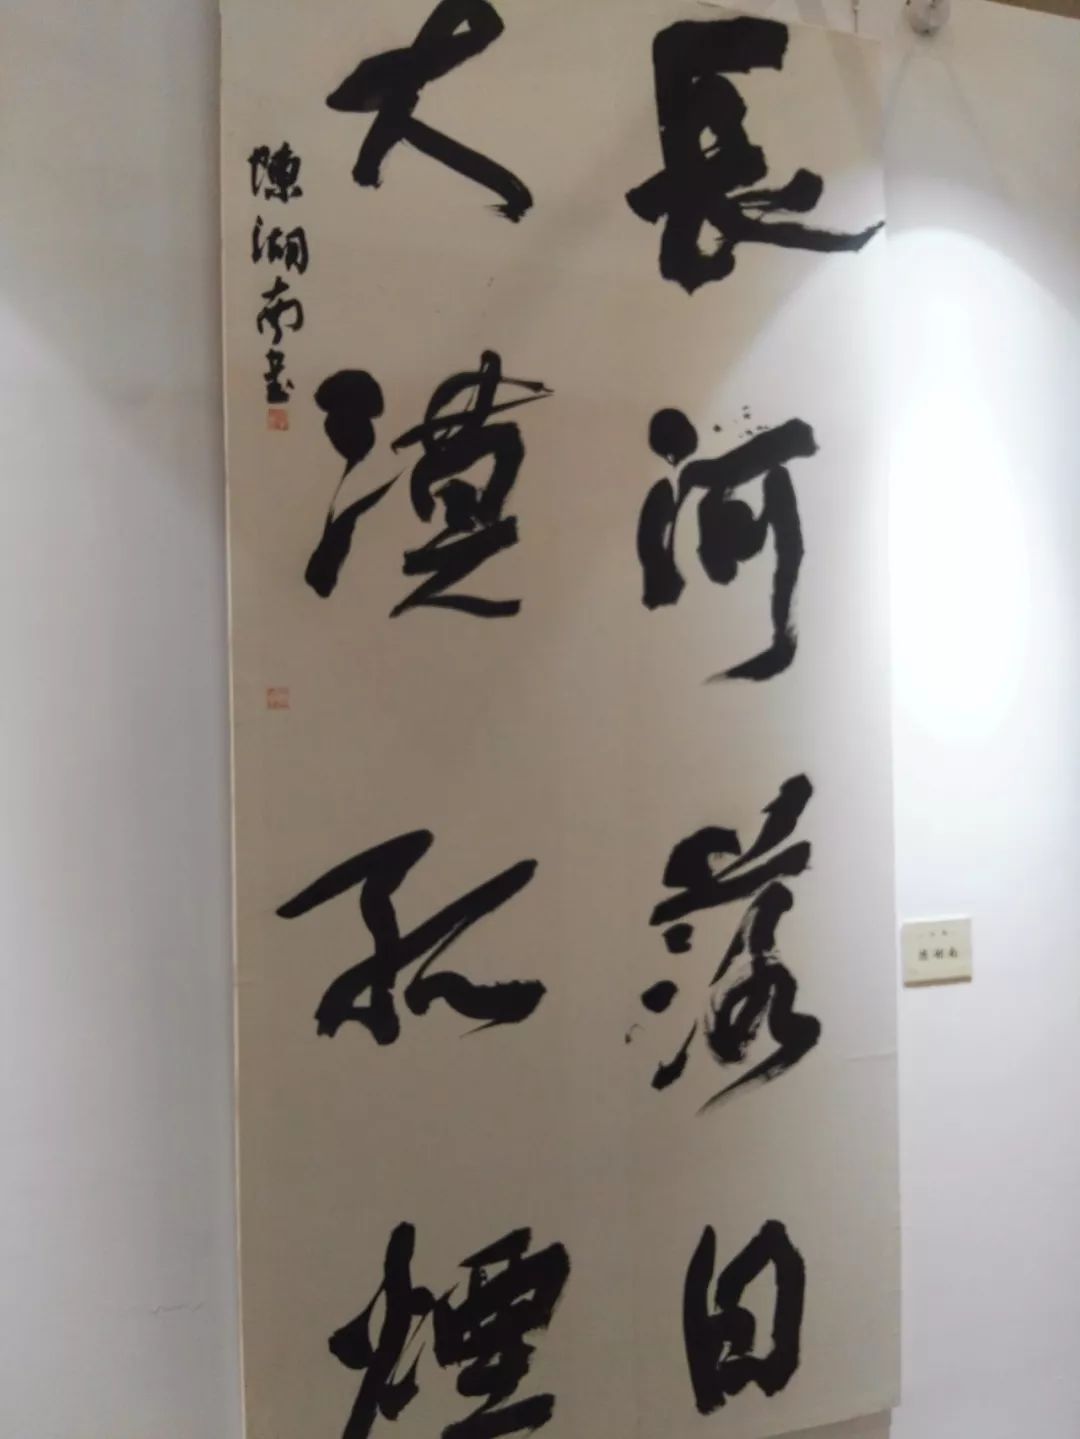 長河落日
大漠孤煙
陳湖南書
陳湖南